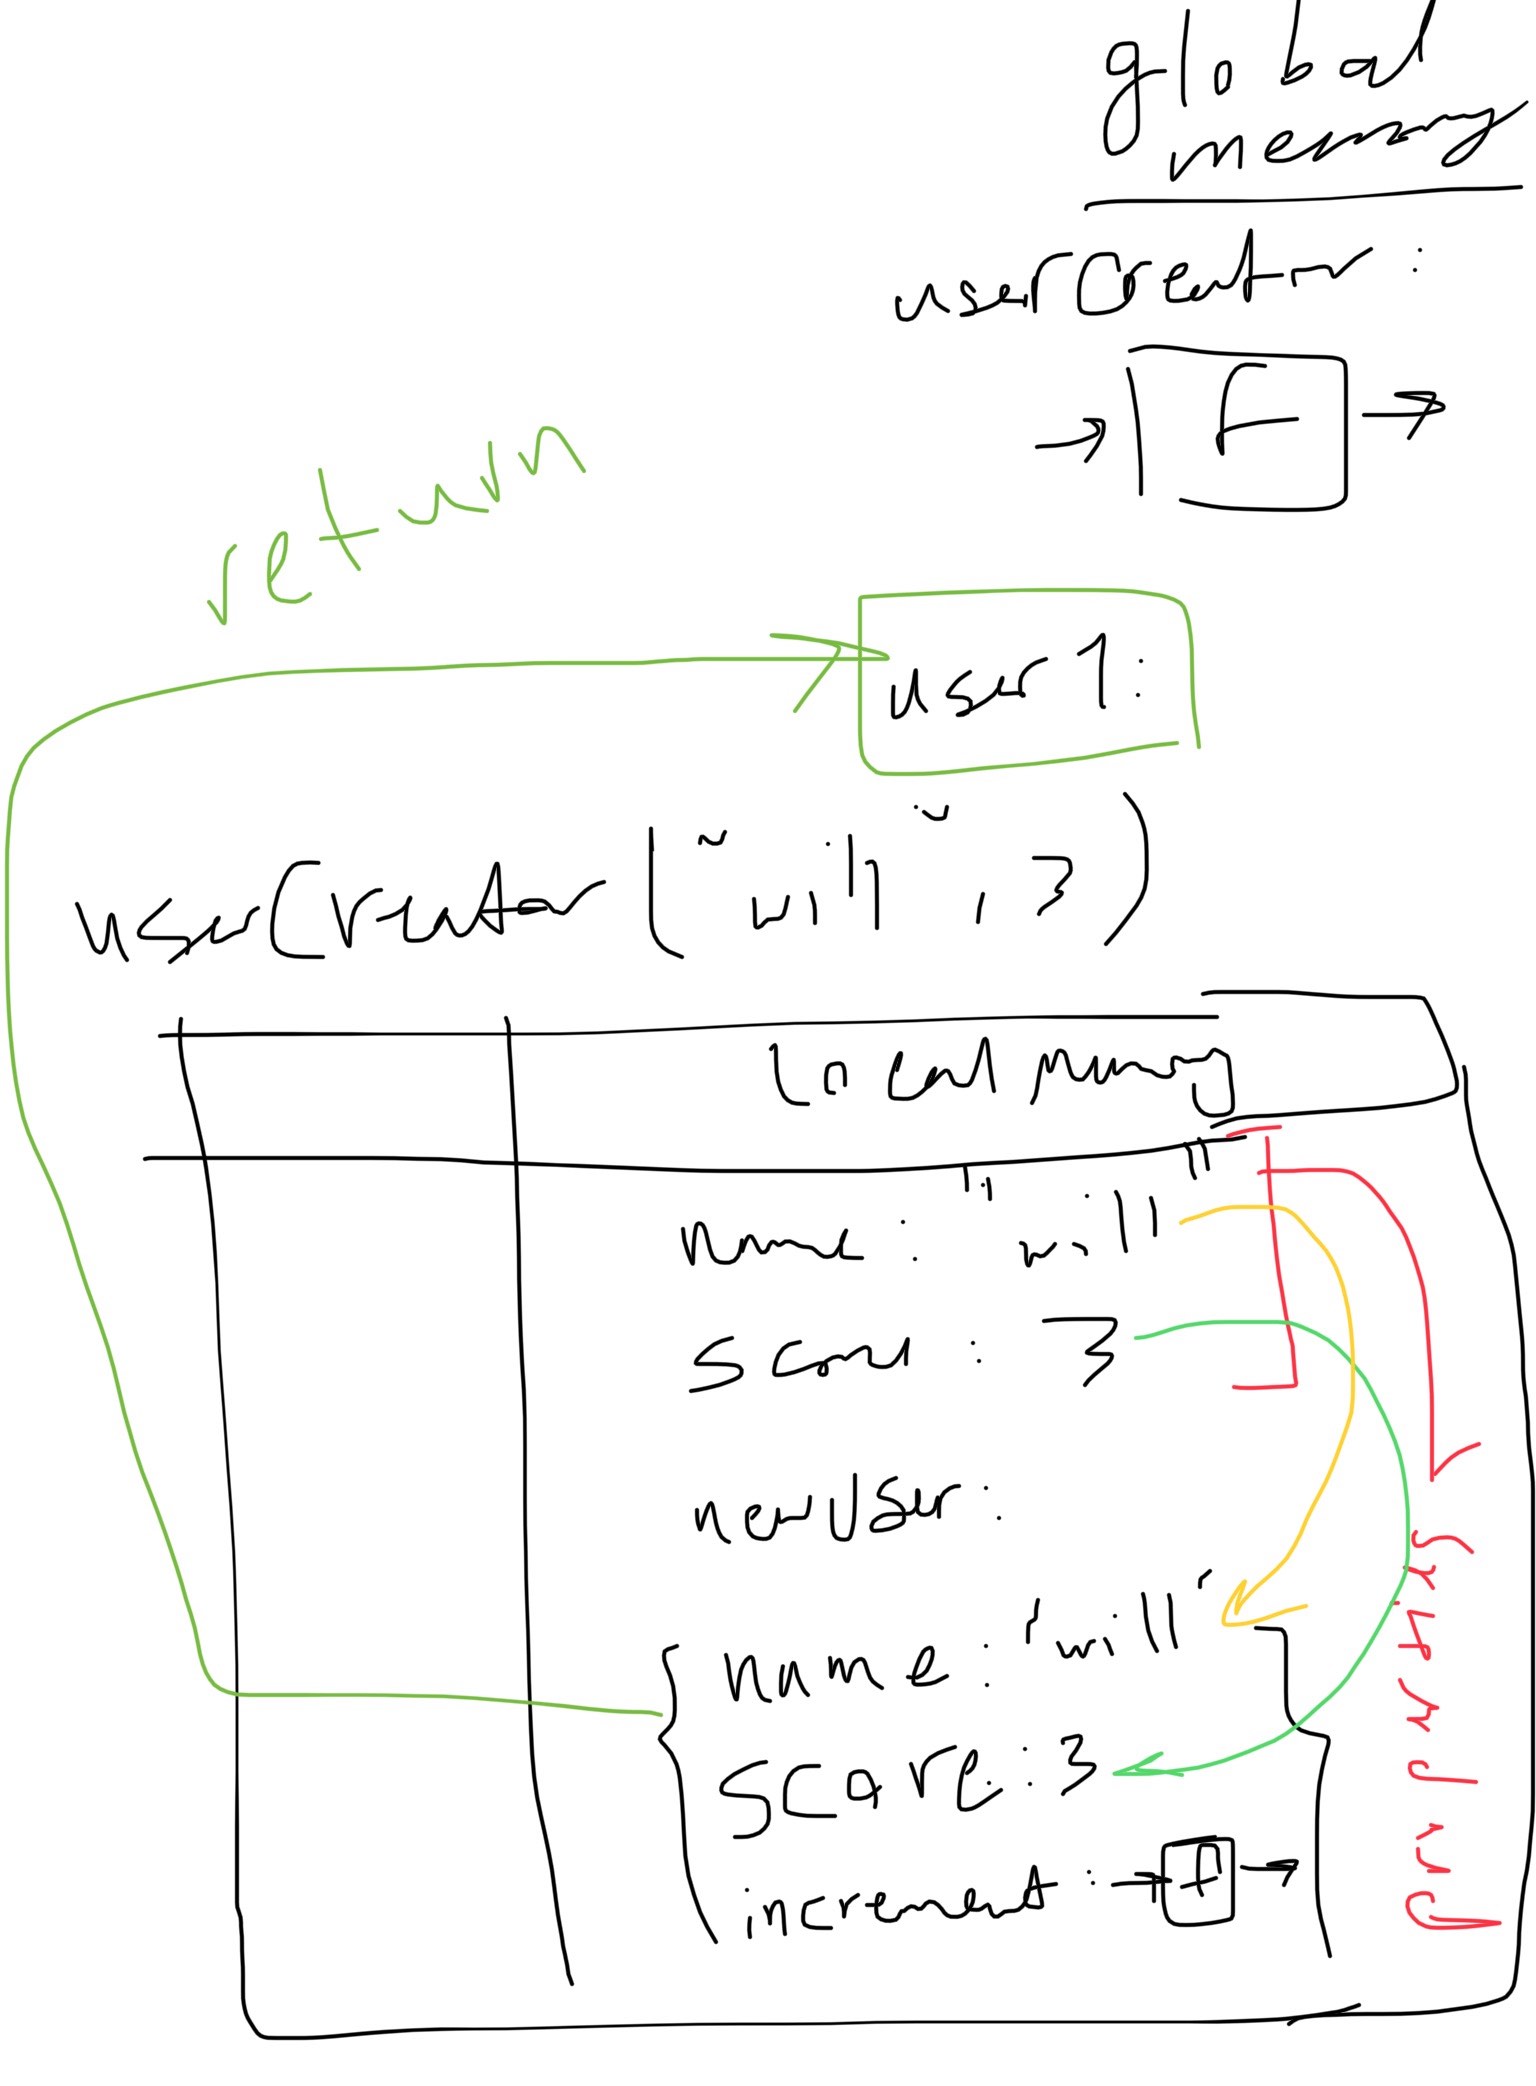 global
memory
userCreator :
F
return
user 1:
userCreator ( "will" , 3 )
local memory
name : "will"
score : 3
newUser :
name : "will"
score : 3
increment : f